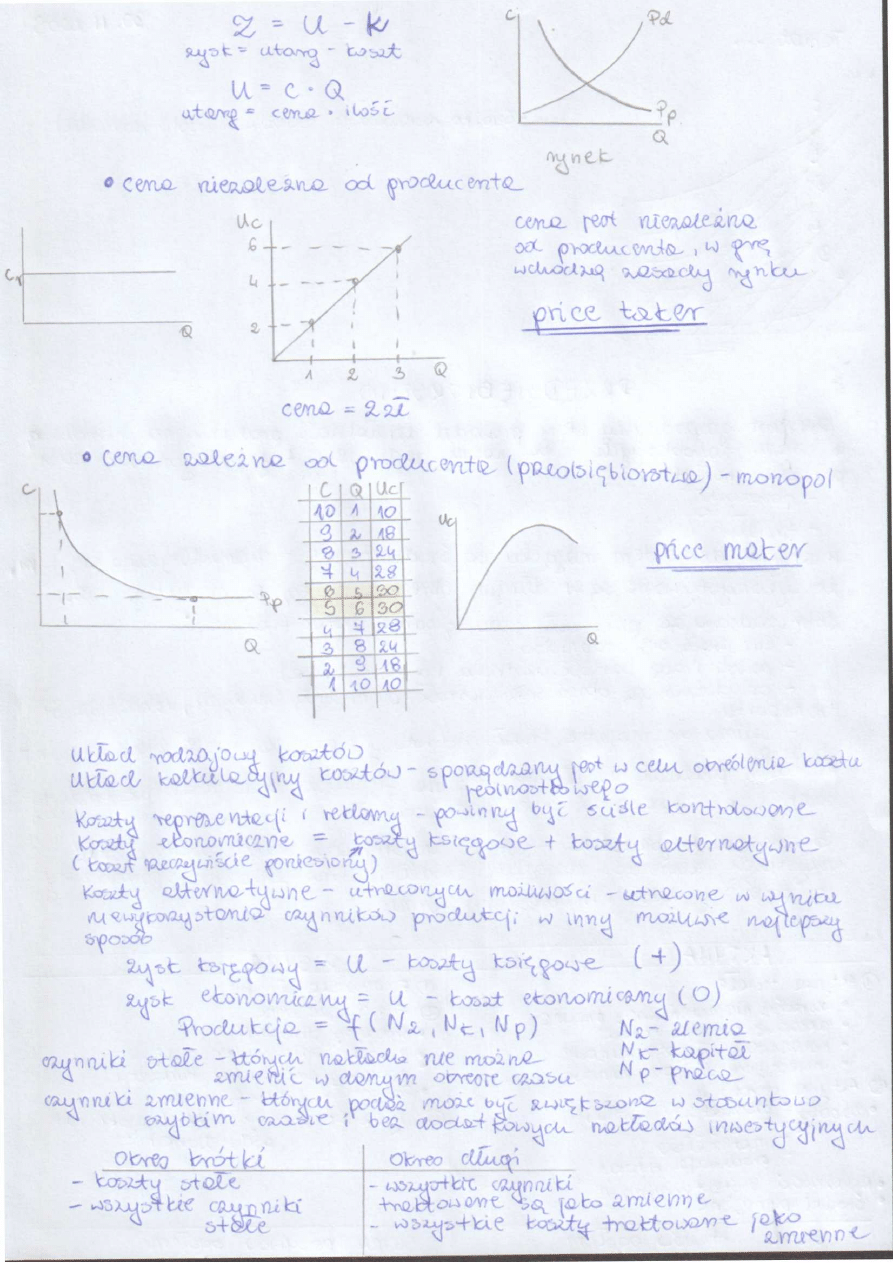 Z = U - K
zysk = utarg - koszt
U = C · Q
utarg = cena · ilość
C
Pd
Pp
Q
rynek
• cena niezależna od producenta
C
Q
Uc
6
4
2
1 2 3
Q
cena = 2zł
cena jest niezależna
od producenta, w grę
wchodzą zasady rynku
price taker
• cena zależna od producenta (przedsiębiorstwa) - monopol
C
Pp
Q
C Q Uc
10 1 10
9 2 18
8 3 24
7 4 28
6 5 30
5 6 30
4 7 28
3 8 24
2 9 18
1 10 10
Uc
Q
price maker
Układ rodzajowy kosztów
Układ kalkulacyjny kosztów - sporządzany jest w celu określenia kosztu
jednostkowego
Koszty reprezentacji i reklamy - powinny być ściśle kontrolowane
Koszty ekonomiczne = koszty księgowe + koszty alternatywne
(koszt rzeczywiście poniesiony)
Koszty alternatywne - utraconych możliwości - utracone w wyniku
niewykorzystania czynników produkcji w inny możliwie najlepszy
sposób
zysk księgowy = U - koszty księgowe (+)
zysk ekonomiczny = U - koszt ekonomiczny (0)
Produkcja = f (Nz, Nk, Np)
Nz - ziemia
Nk - kapitał
Np - praca
czynniki stałe - których nakładu nie można
zmienić w danym okresie czasu
czynniki zmienne - których podaż może być zwiększona w stosunkowo
szybkim czasie i bez dodatkowych nakładów inwestycyjnych
Okres krótki
- koszty stałe
- wszystkie czynniki
stałe
Okres długi
- wszystkie czynniki
traktowane są jako zmienne
- wszystkie koszty traktowane jako
zmienne